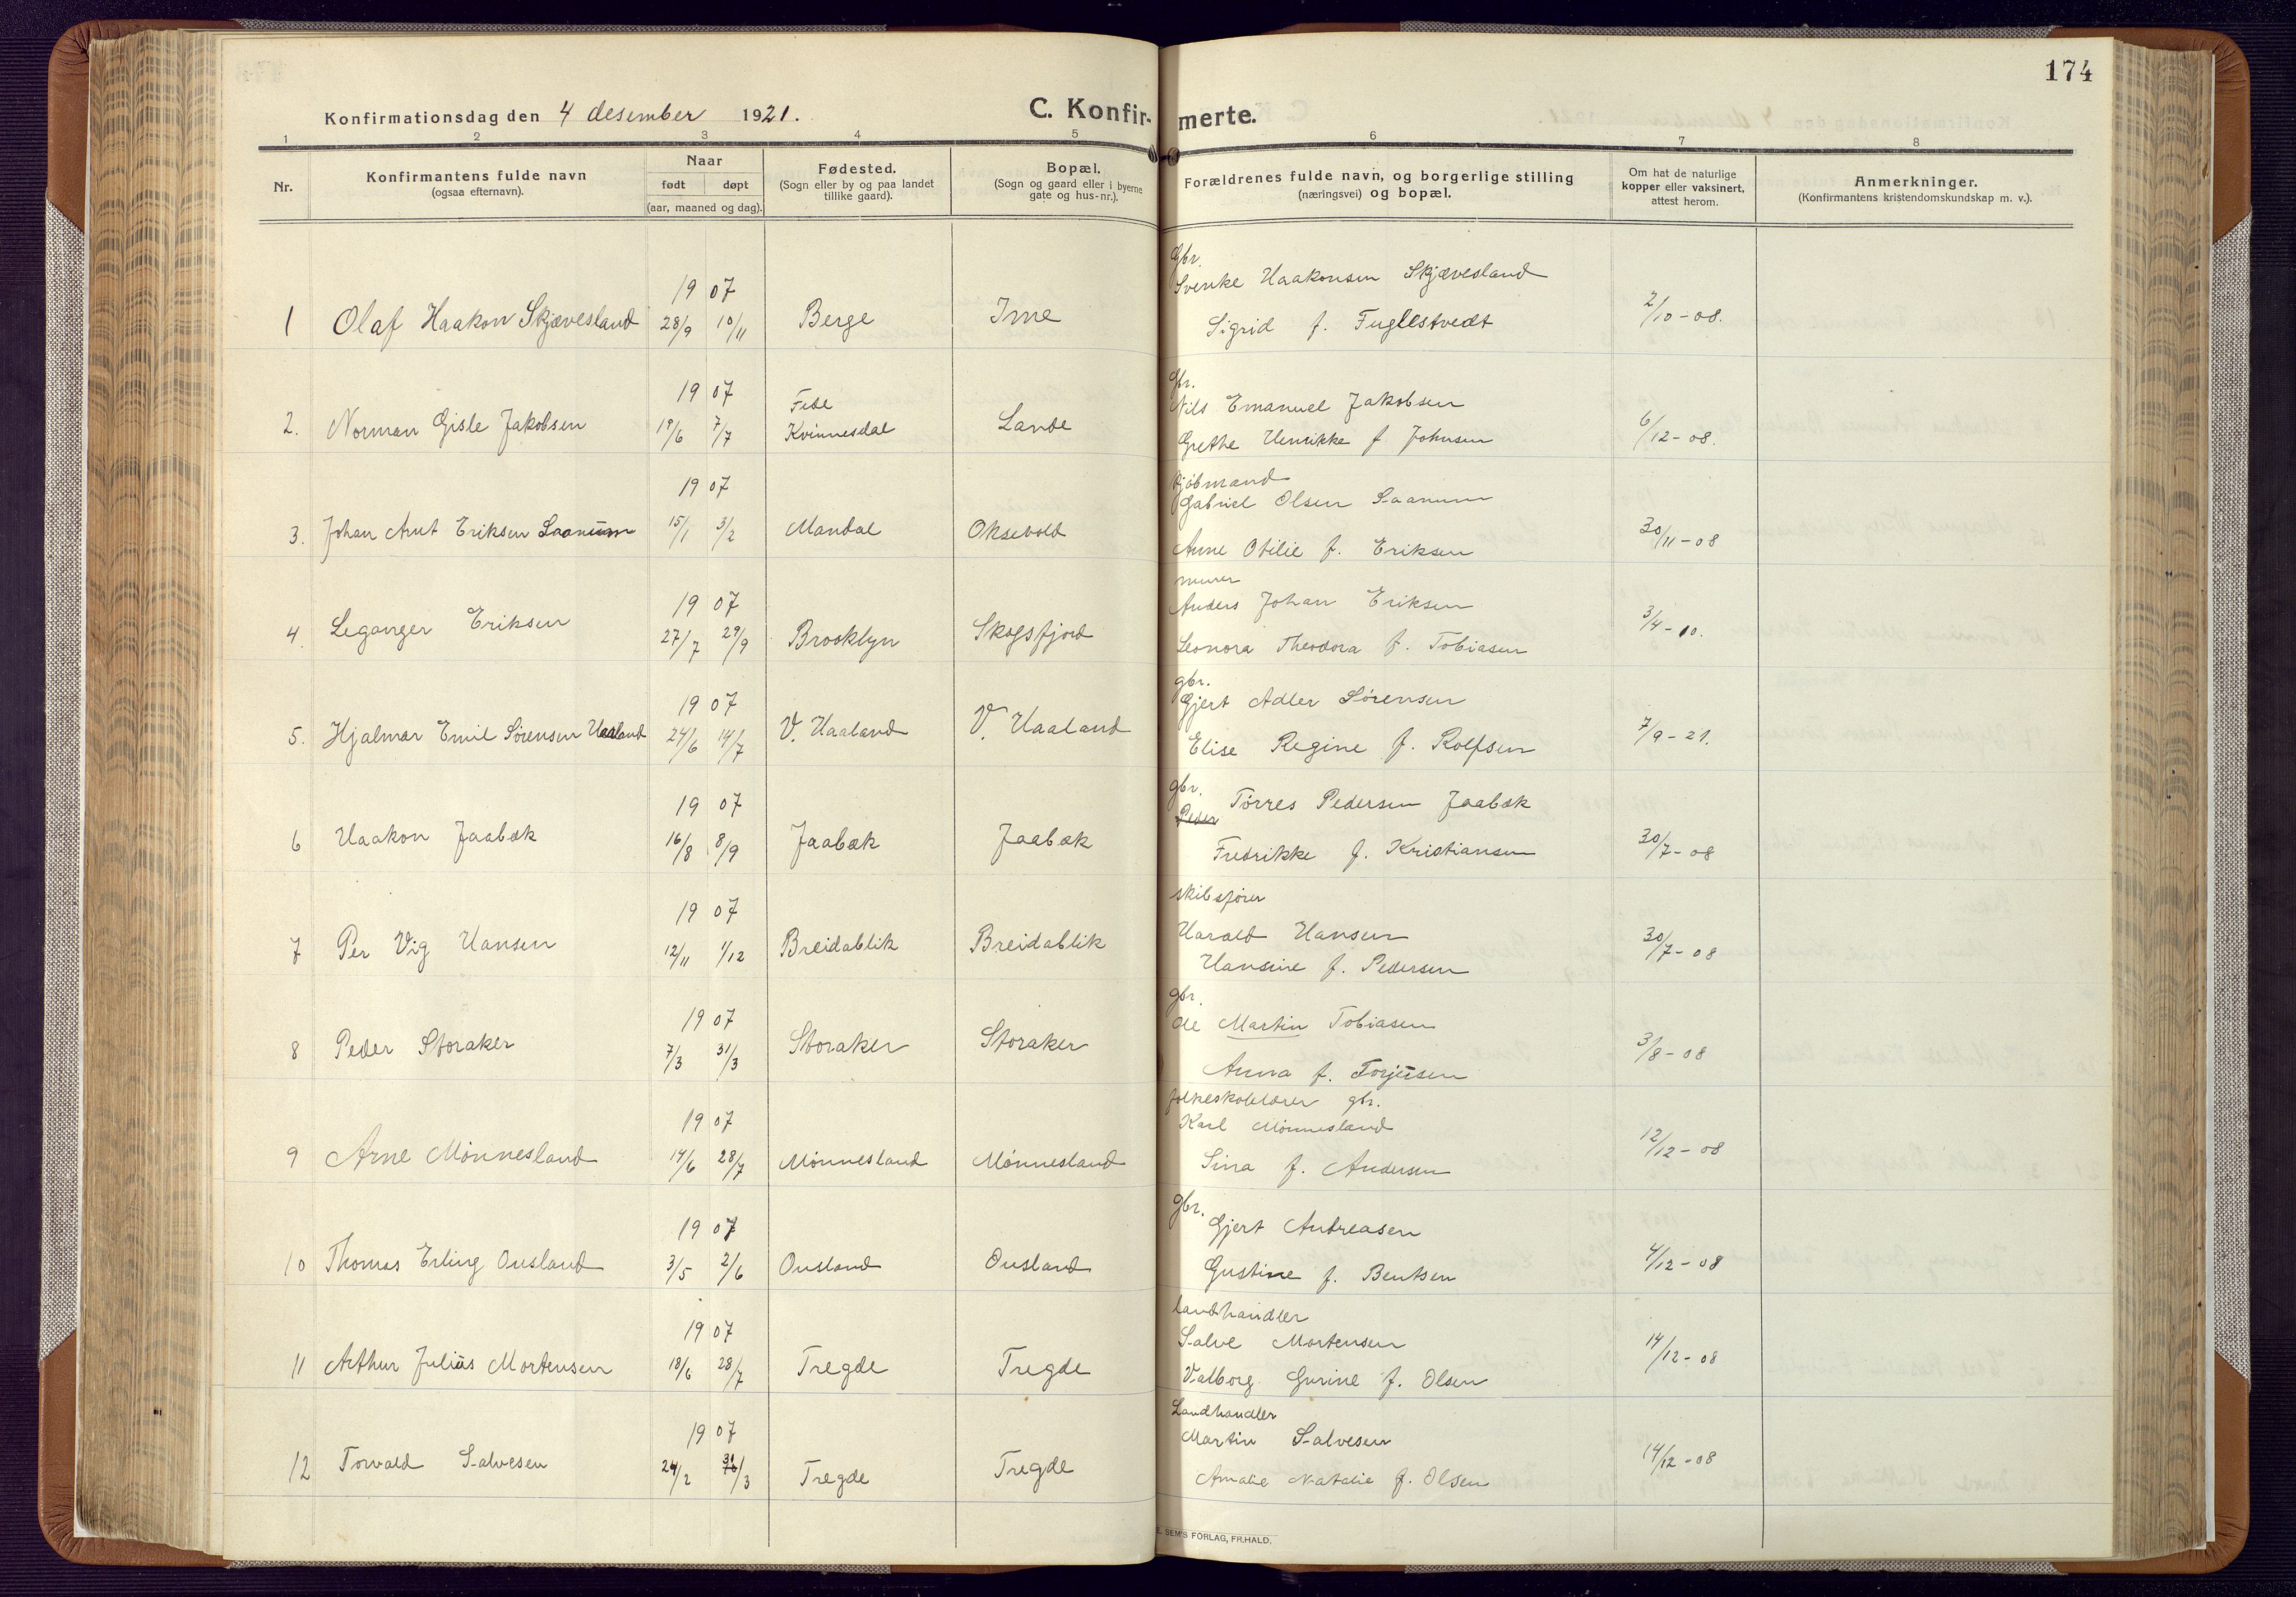 174
Konfirmationsdag den 4 desember 1921.
C. Konfir- merte.
1 2 3 4 5 6 7 8
Nr.
Konfirmantens fulde navn
(ogsaa efternavn).
Naar
født døpt
(aar, maaned og dag).
Fødested.
(Sogn eller by og paa landet
tillike gaard).
Bopæl.
(Sogn og gaard eller i byerne
gate og hus-nr.).
Forældrenes fulde navn, og borgerlige stilling
(næringsvei) og bopæl.
Om hat de naturlige
kopper eller vaksinert,
attest herom.
Anmerkninger.
(Konfirmantens kristendomskundskap m. v.).
Gbr.
19 07 Svenke Haakonsen Skjævesland
1 Olaf Haakon Skjævesland 28/9 10/11 Berge Ime 2/10-08.
Sigrid f. Fuglestvedt
Gbr.
19 07 Fede Nils Emanuel Jakobsen
2. Norman Gisle Jakobsen 19/6 7/7 Kvinnesdal Lande 6/12-08.
Grethe Henrikke f Johnsen
Sjøbmand
19 07 Gabriel Olsen Saanum
3. Johan Arnt Eriksen Saanum 15/1 3/2 Mandal Oksevold 30/11-08
Anne Otilie f. Eriksen
murer
19 07 Anders Johan Eriksen
4. Leganger Eriksen 27/7 29/9 Brooklyn Skogsfjord 3/4-10.
Leonora Theodora f. Tobiasen
gbr.
19 07 Gjert Adler Sørensen
5. Hjalmar Emil Sørensen Haaland 24/6 14/7 V. Haaland V. Haaland 7/9-21.
Elise Regine f. Rolfsen
gbr.
19 07 Peder Tørres Pedersen Jaabæk
6 Haakon Jaabæk 16/8 8/9 Jaabæk Jaabæk 30/7-08
Fredrikke f. Kristiansen
skibsfører
19 07 Harald Hansen
7 Per Vig Hansen 12/11 1/12 Breidablik Breidablik 30/7-08
Hansine f. Pedersen
gbr.
19 07 Ole Martin Tobiasen
8 Peder Storaker 7/3 31/3 Storaker Storaker 3/8-08
Anna f. Torjusen
folkeskolelærer gbr.
19 07 Karl Mønnesland
9 Arne Mønnesland 14/6 28/7 Mønnesland Mønnesland 12/12-08
Sina f. Andersen
gbr.
19 07 Gjert Andreasen
10 Thomas Erling Ousland 3/5 2/6 Ousland Ousland 4/12-08
Gustine f. Bentsen
landhandler
19 07 Salve Mortensen
11 Arthur Julius Mortensen 18/6 28/7 Tregde Tregde 14/12-08
Valborg Gurine f. Olsen
Landhandler
19 07 Martin Salvesen
12 Torvald Salvesen 24/2 31/3 Tregde Tregde 14/12-08
Amalie Natalie f. Olsen
E. SEM'S FORLAG, FR.HALD.